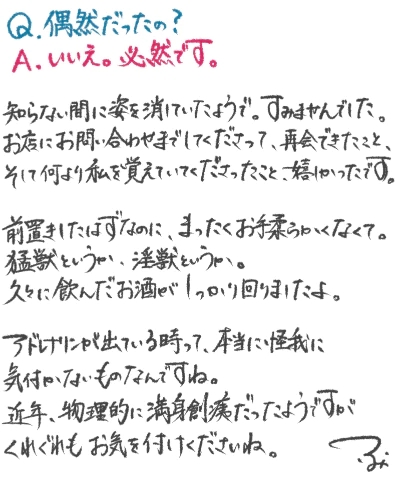 Q. 偶然だったの?
A. いいえ。必然です。
知らない間に姿を消していたようで。すみませんでした。
お店にお問い合わせまでしてくださって、再会できたこと、
そして何より私を覚えていてくださったこと、嬉しかったです。
前置きしたはずなのに、まったくお手柔らかくなくて。
猛獣というか、淫獣というか。
久々に飲んだお酒がしっかり回りましたよ。
アドレナリンが出ている時って、本当に怪我に
気付かないものなんですね。
近年、物理的に満身創痍だったようですが
くれぐれもお気を付けくださいね。
ふみ